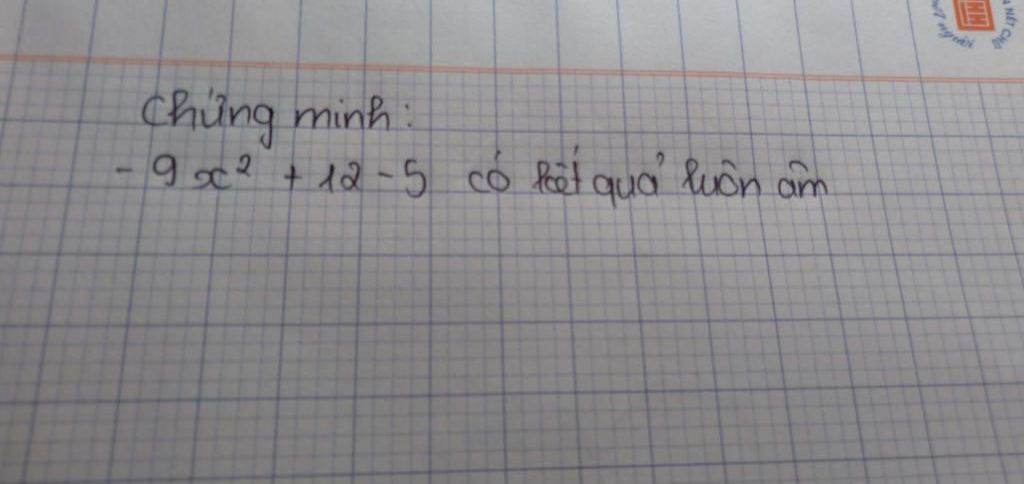 Chứng minh:
- 9x² + 12 - 5 có kết quả luôn âm